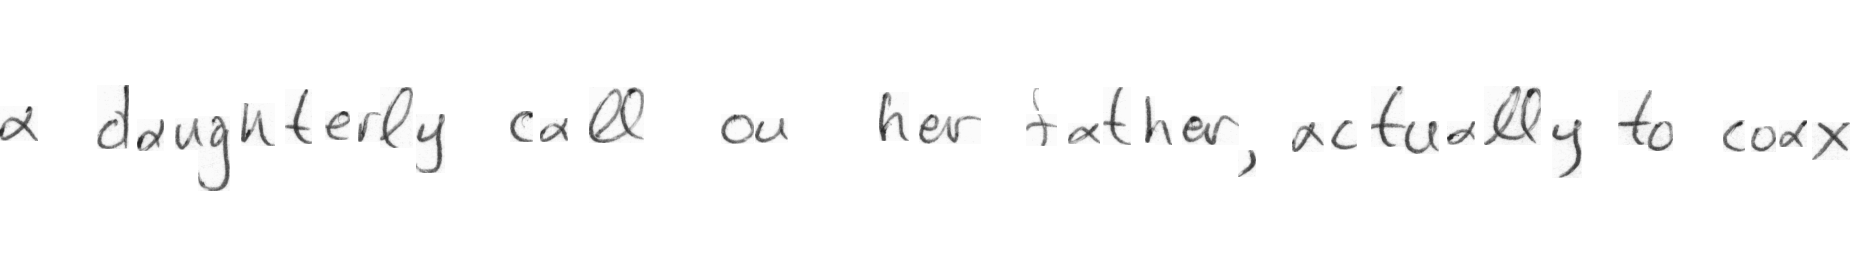 a daughterly call on her father, actually to coax